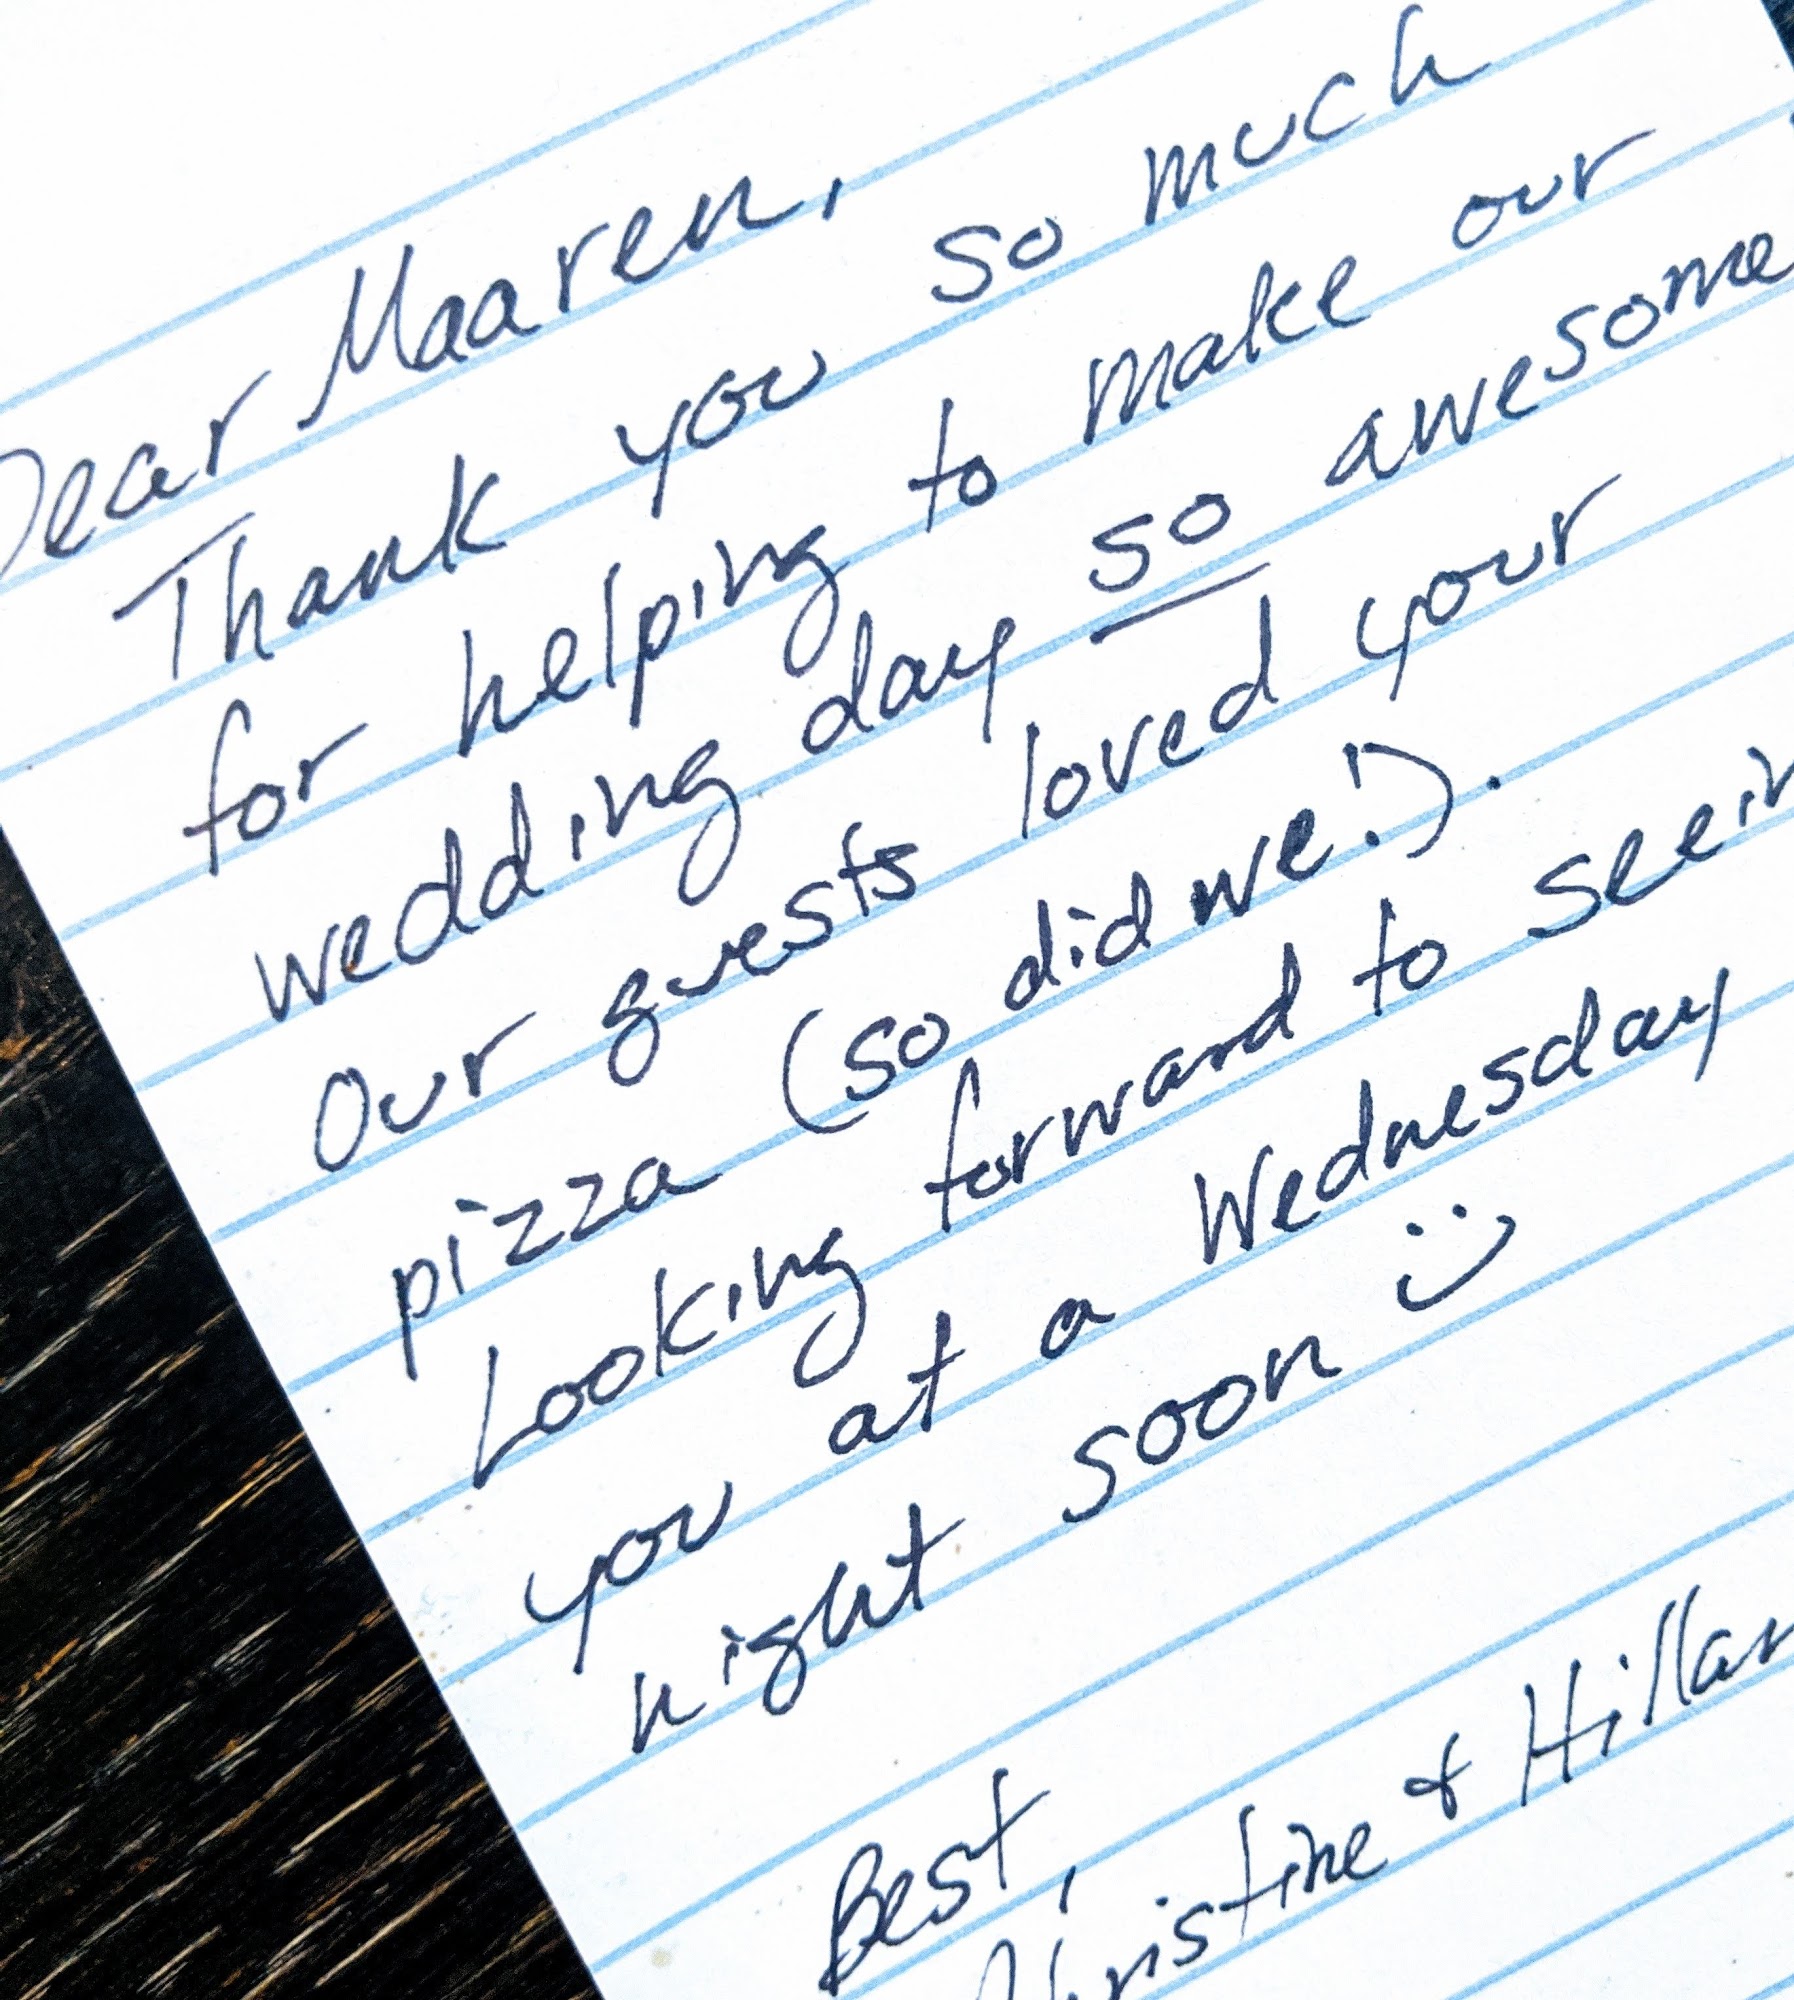 Dear Maaren,
Thank you so much
for helping to make our
wedding day so awesome
Our guests loved your
pizza (so did we!).
Looking forward to seein
you at a Wednesday
night soon :)
Best,
Christine & Hillar